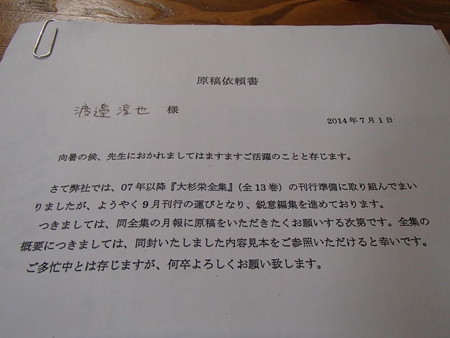 原稿依頼書
渡邉淳也 様
2014年7月1日
向暑の候、先生におかれましてはますますご活躍のことと存じます。
さて弊社では、07年以降『大杉栄全集』(全13巻)の刊行準備に取り組んでまい
りましたが、ようやく9月刊行の運びとなり、鋭意編集を進めております。
つきましては、同全集の月報に原稿をいただきたくお願いする次第です。全集の
概要につきましては、同封いたしました内容見本をご参照いただけると幸いです。
ご多忙中とは存じますが、何卒よろしくお願い致します。